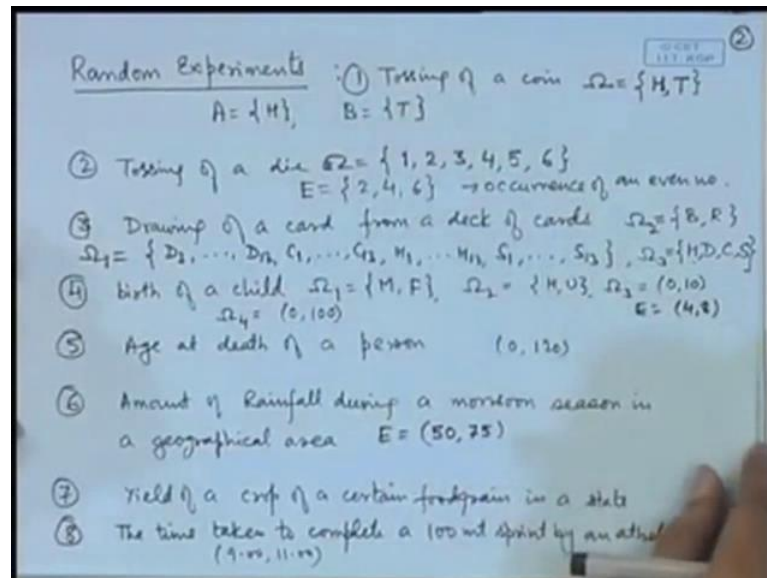 ②
Random Experiments : ① Tossing of a coin Ω = {H, T}
A = {H}, B = {T}
② Tossing of a die Ω = {1, 2, 3, 4, 5, 6}
E = {2, 4, 6} → occurrence of an even no.
③ Drawing of a card from a deck of cards Ω₂ = {B, R}
Ω₁ = {D₁, ..., D₁₃, C₁, ..., C₁₃, H₁, ... H₁₃, S₁, ..., S₁₃}, Ω₃ = {H, D, C, S}
④ birth of a child Ω₁ = {M, F}, Ω₂ = {H, U}, Ω₃ = (0, 10)
Ω₄ = (0, 100) E = (4, 8)
⑤ Age at death of a person (0, 120)
⑥ Amount of Rainfall during a monsoon season in
a geographical area E = (50, 75)
⑦ Yield of a crop of a certain foodgrain in a state
⑧ The time taken to complete a 100 mt sprint by an
(9.00, 11.00)